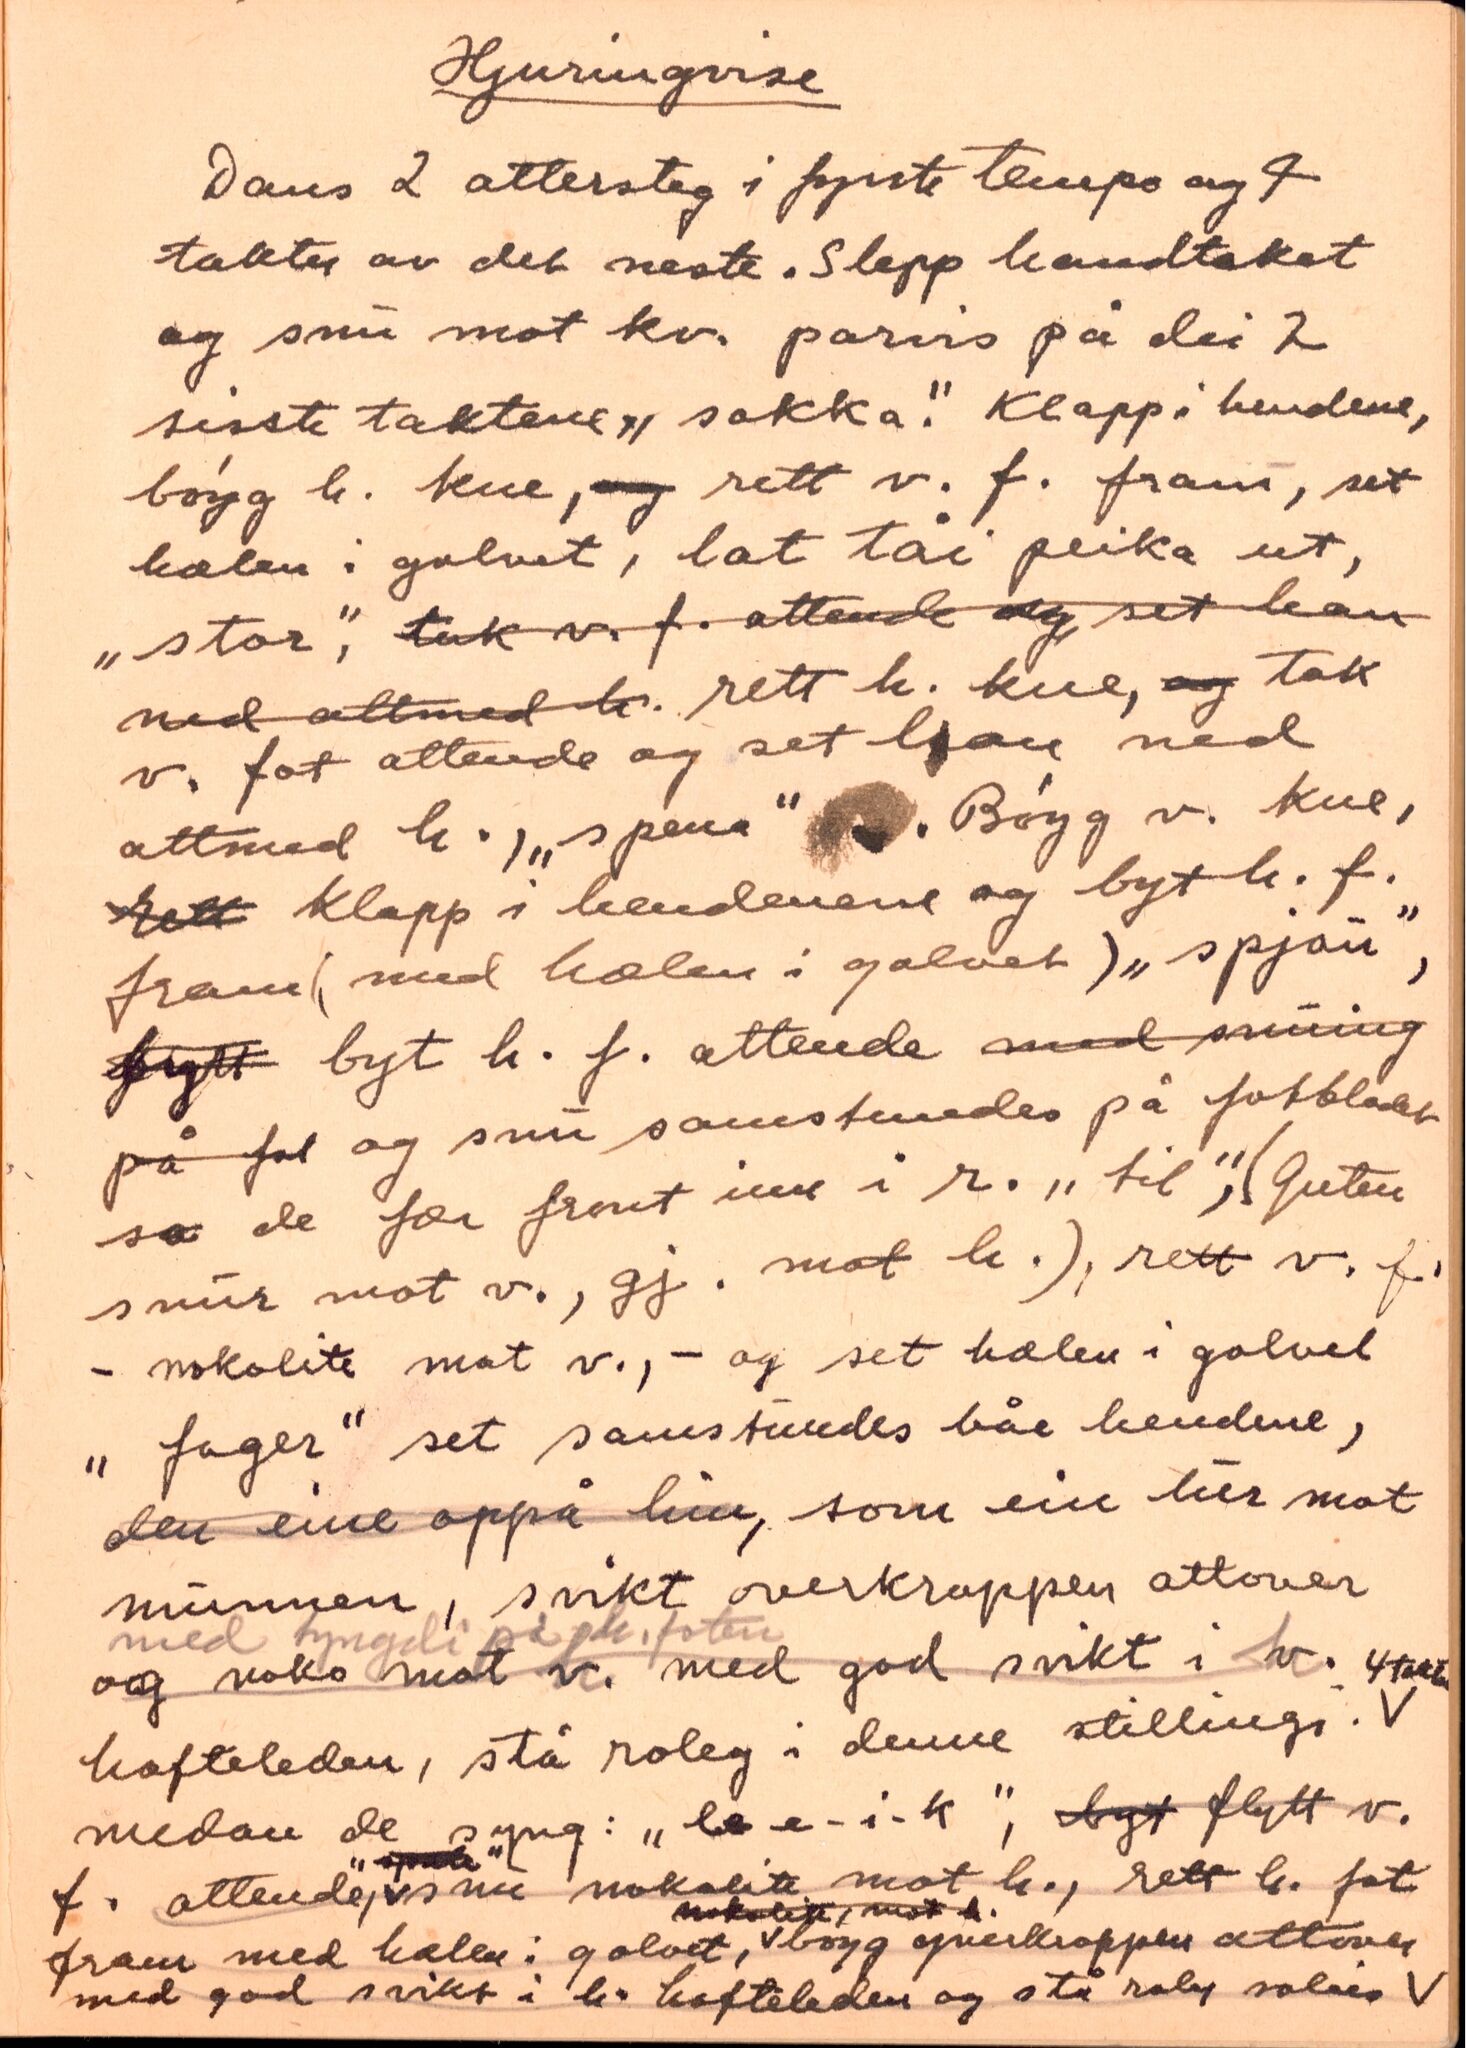 Hjuringvise
Dans 2 attersteg i fyrste tempo og 4
takter av det neste. Slepp handtaket
og snu mot kv. parvis på dei 2
siste taktene, „sokka". Klapp i hendene,
bøyg h. kne, og rett v. f. fram, set
hælen i golvet, lat tåi peika ut,
„stor", tak v. f. attende og set han
ned attmed h. rett h. kne, og tak
v. fot attende og set han ned
attmed h., „spena". Bøyg v. kne,
rett klapp i hendenene og byt h. f.
fram (med hælen i golvet) „spjou",
flytt byt h. f. attende med snuing
på fot og snu samstundes på fotbladet
so de fær front inn i r. „til", (Guten
snur mot v., gj. mot h.), rett v. f.
- nokolite mot v., - og set hælen i golvet
„fager" set samstundes båe hendene,
den eine oppå hin, som ein lur mot
munnen, svikt overkroppen attover
med tyngdi på h. foten
og noko mot v. med god svikt i h. 4 takter
hofteleden, stå roleg i denne stillingi. V
medan de syng: „le e-i-k", byt flytt v.
f. attende, snu nokolite mot h., rett h. fot
nokolite, mot h.
fram med hælen i golvet, V bøyg yverkroppen attover
med god svikt i h. hofteleden og stå roleg soleis V